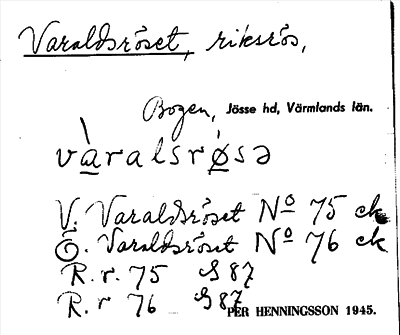 Varaldsröset, riksrös,
Bogen, Jösse hd, Värmlands län.
vàralsrø̀sə
V. Varaldsröset No 75 ek
Ö. Varaldsröset No 76 ek
R. r. 75 S 87
R. r 76 S 87
PER HENNINGSSON 1945.